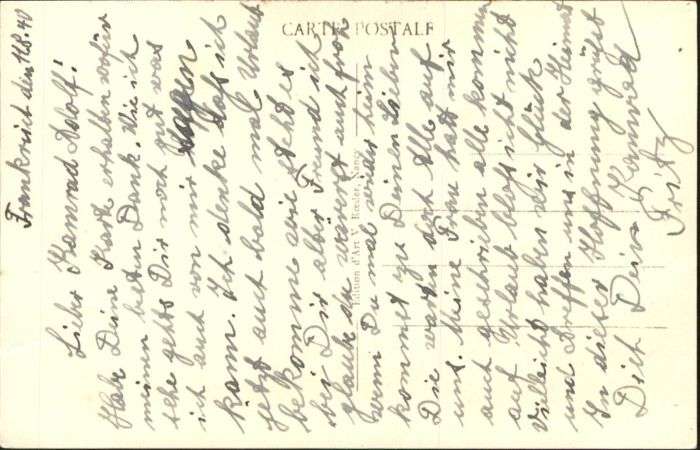 CARTE POSTALE
Edition d'Art V. Rœder, Nancy
Frankreich den 11.8.40
Lieber Kamrad Adolf!
Hab Deine Karte erhalten wofür
meinen besten Dank. Wie ich
sehe gehts Dir noch gut was
ich auch von mir sagen
kann. Ich denke daß ich
jetzt auch bald mal Urlaub
bekomme wie steht es
bei Dir alter Freund ich
glaube du wärerst auch froh
wenn Du mal wieder heim
kommst zu Deinen Lieben
Die warten dort Alle auf
uns. Meine Frau hatt mir
auch geschrieben alle kommen
auf Urlaub blos ich nicht
Vielleicht haben wir glück
und treffen uns in der Heimat
In dieser Hoffnung grüßt
Dich Dein Kamrad
Fritz